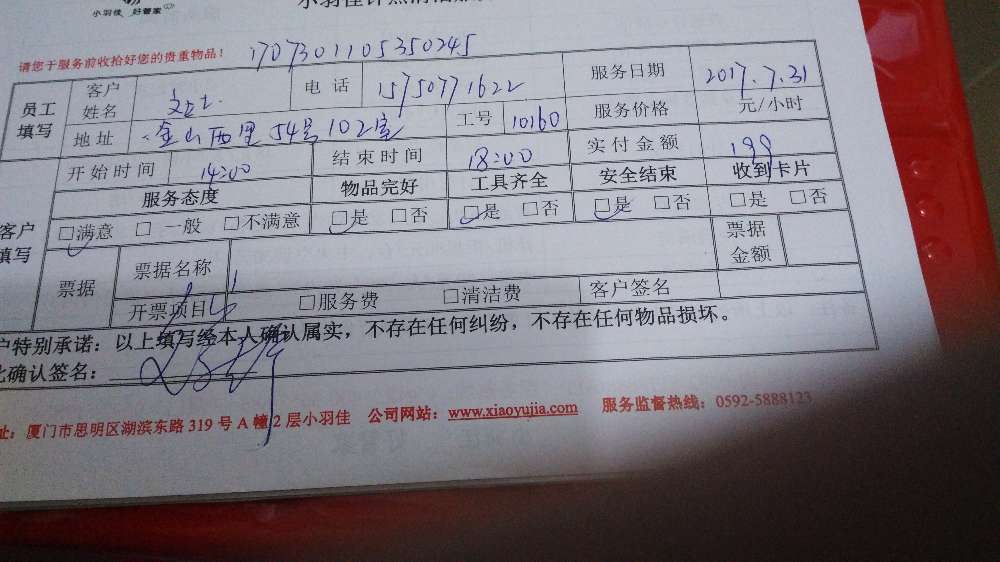 小羽佳 好管家
小羽佳计点清洁服
请您于服务前收拾好您的贵重物品！ 1707301105350245
员工填写 客户姓名 电话 15750771622 服务日期 2017.7.31
地址 金山西里54号102室 工号 10160 服务价格 元/小时
开始时间 14:00 结束时间 18:00 实付金额 199
服务态度 物品完好 工具齐全 安全结束 收到卡片
客户填写 □满意 □一般 □不满意 □是 □否 □是 □否 □是 □否 □是 □否
票据 票据名称 票据金额
开票项目 □服务费 □清洁费 客户签名
户特别承诺：以上填写经本人确认属实，不存在任何纠纷，不存在任何物品损坏。
此确认签名：
址：厦门市思明区湖滨东路319号A幢2层小羽佳 公司网站：www.xiaoyujia.com 服务监督热线：0592-5888123